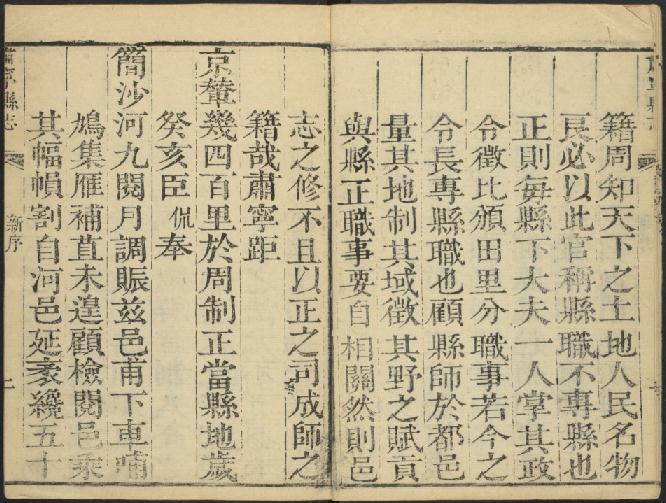 籍周知天下之土地人民名物
良必以此官稱縣職不專縣也
正則每縣下大夫一人掌其政
令徵比頒田里分職事若今之
令長專縣職也顧縣師於都邑
量其地制其域徵其野之賦貢
與縣正職事要自相關然則邑
志之修不且以正之司成師之
籍哉肅寧距
京輦幾四百里於周制正當縣地歲
癸亥臣侃奉
簡沙河九閱月調賑茲邑甫下車哺
鳩集雁補苴未遑顧檢閱邑乘
其幅幀割自河邑延袤纔五十
肅寧縣志
新序